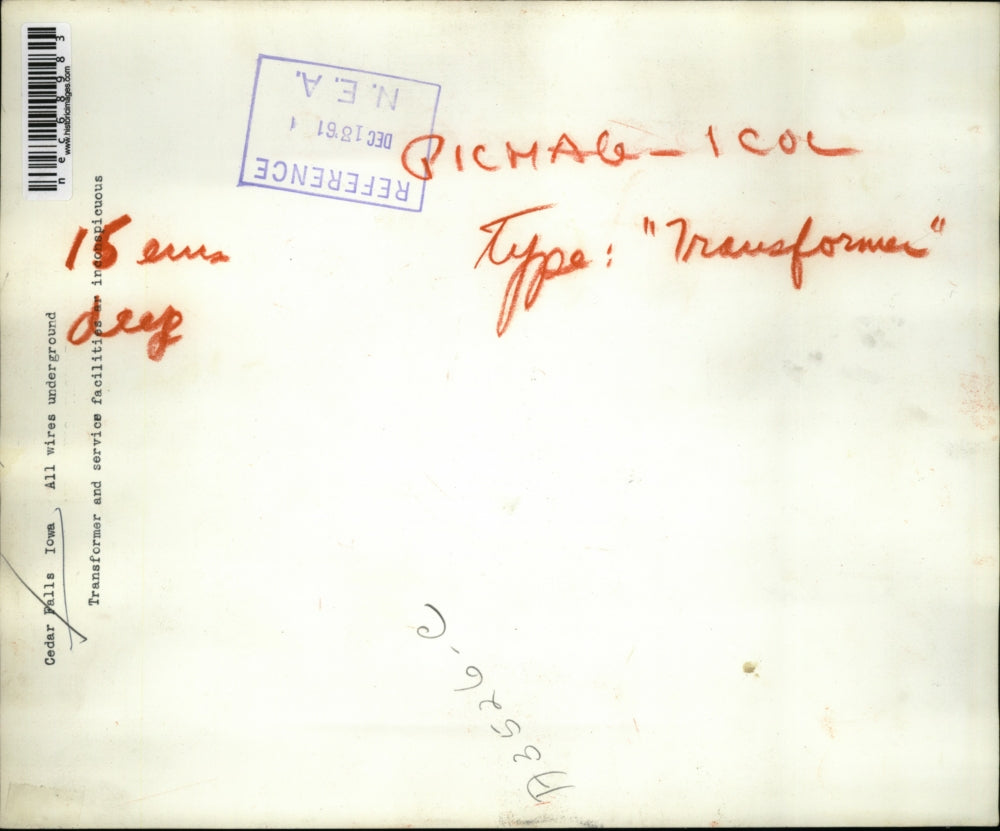 necG8983
www.historicimages.com
N.E.A.
DEC 13 '61
REFERENCE
PICMAG - 1 COL
Type: "Transformer"
15 ems
deep
Cedar Falls Iowa All wires underground
Transformer and service facilities ar inconspicuous
A3526-C